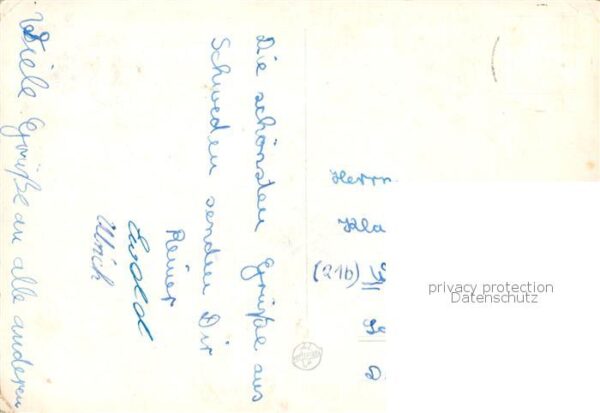 Die schönsten Grüße aus
Schweden senden Dir
Reiner
Ewald
Ulrich
Viele Grüße an alle anderen
Herrn
Kla
(21b)
privacy protection
Datenschutz